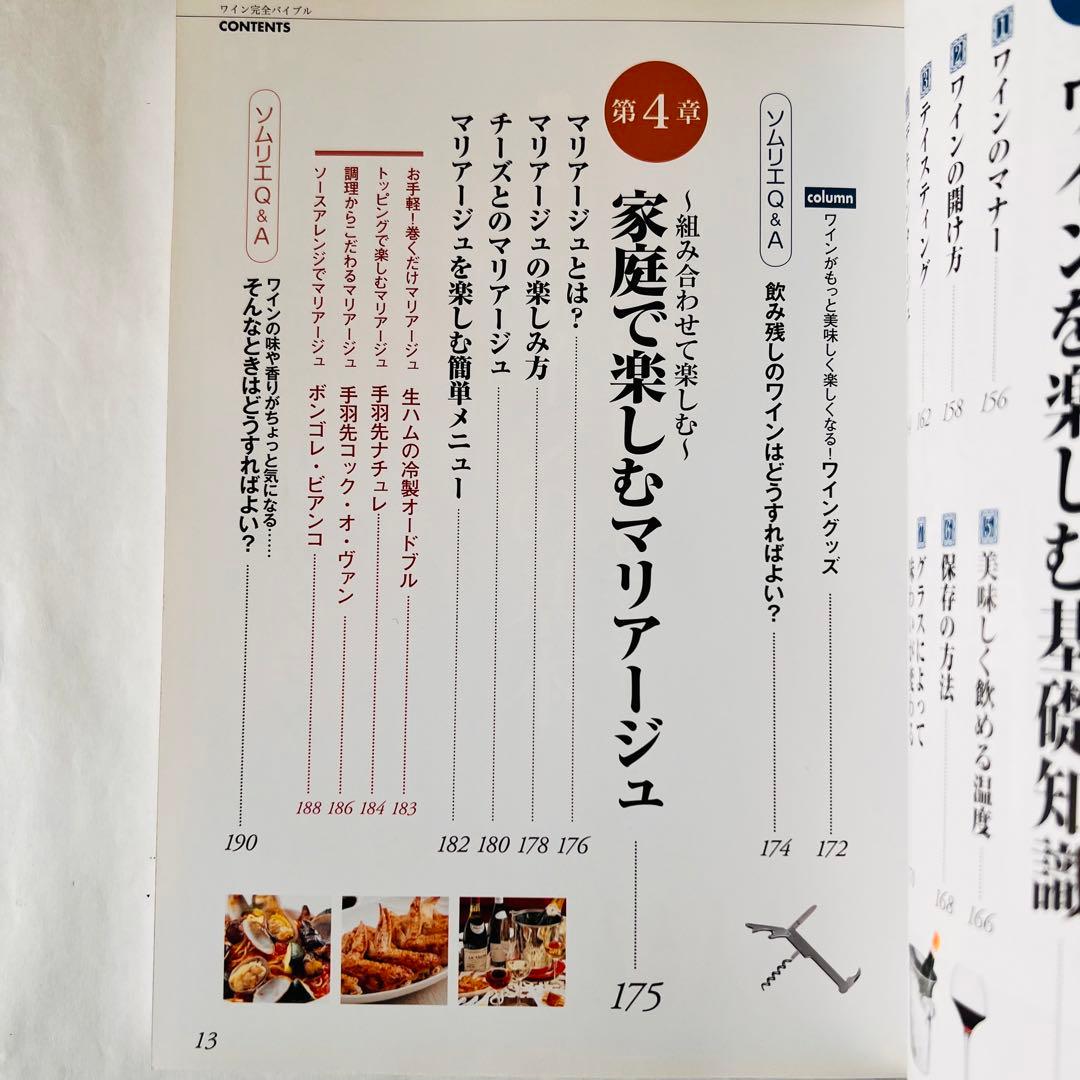 ワイン完全バイブル
CONTENTS
ワインを楽しむ基礎知識
1 ワインのマナー 156
2 ワインの開け方 158
3 テイスティング 162
5 美味しく飲める温度 166
6 保存の方法 168
グラスによって
column ワインがもっと美味しく楽しくなる!ワイングッズ 172
ソムリエQ&A 飲み残しのワインはどうすればよい? 174
第4章
〜組み合わせて楽しむ〜
家庭で楽しむマリアージュ 175
マリアージュとは? 176
マリアージュの楽しみ方 178
チーズとのマリアージュ 180
マリアージュを楽しむ簡単メニュー 182
お手軽!巻くだけマリアージュ 生ハムの冷製オードブル 183
トッピングで楽しむマリアージュ 手羽先ナチュレ 184
調理からこだわるマリアージュ 手羽先コック・オ・ヴァン 186
ソースアレンジでマリアージュ ボンゴレ・ビアンコ 188
ソムリエQ&A
ワインの味や香りがちょっと気になる……
そんなときはどうすればよい? 190
13